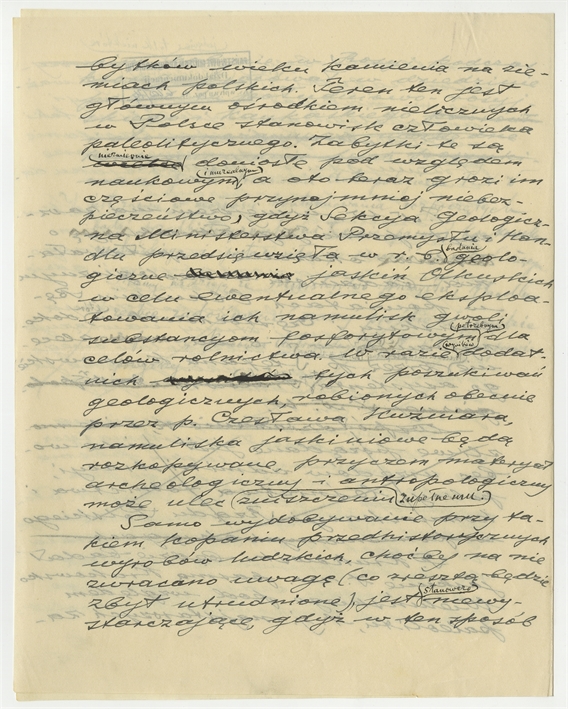 bytków wieku kamienia na zie-
miach polskich. Teren ten jest
głównym ośrodkiem nielicznych
w Polsce stanowisk człowieka
paleolitycznego. Zabytki te są
niezmiernie
doniosłe pod względem
i muzealnym
naukowym, a oto teraz grozi im
częściowe przynajmniej niebez-
pieczeństwo, gdyż Sekcja Geologicz-
na Ministerstwa Przemysłu i Han-
badania
dlu przedsięwzięła w r. b. geolo-
giczne jaskiń Olkuskich
w celu ewentualnego eksploa-
towania ich namulisk gwoli
potrzebnym
substancyom fosforytowym dla
wyników
celów rolnictwa. W razie dodat-
nich tych poszukiwań
geologicznych, robionych obecnie
przez p. Czesława Kuźniara,
namuliska jaskiniowe będą
rozkopywane, przyczem materyał
archeologiczny i antropologiczny
może uledz zniszczeniu zupełnemu.
Samo wydobywanie przy ta-
kiem kopaniu przedhistorycznych
wyrobów ludzkich, choćby na nie
zwracano uwagę (co zresztą będzie
stanowczo
zbyt utrudnione), jest niewy-
starczające, gdyż w ten sposób